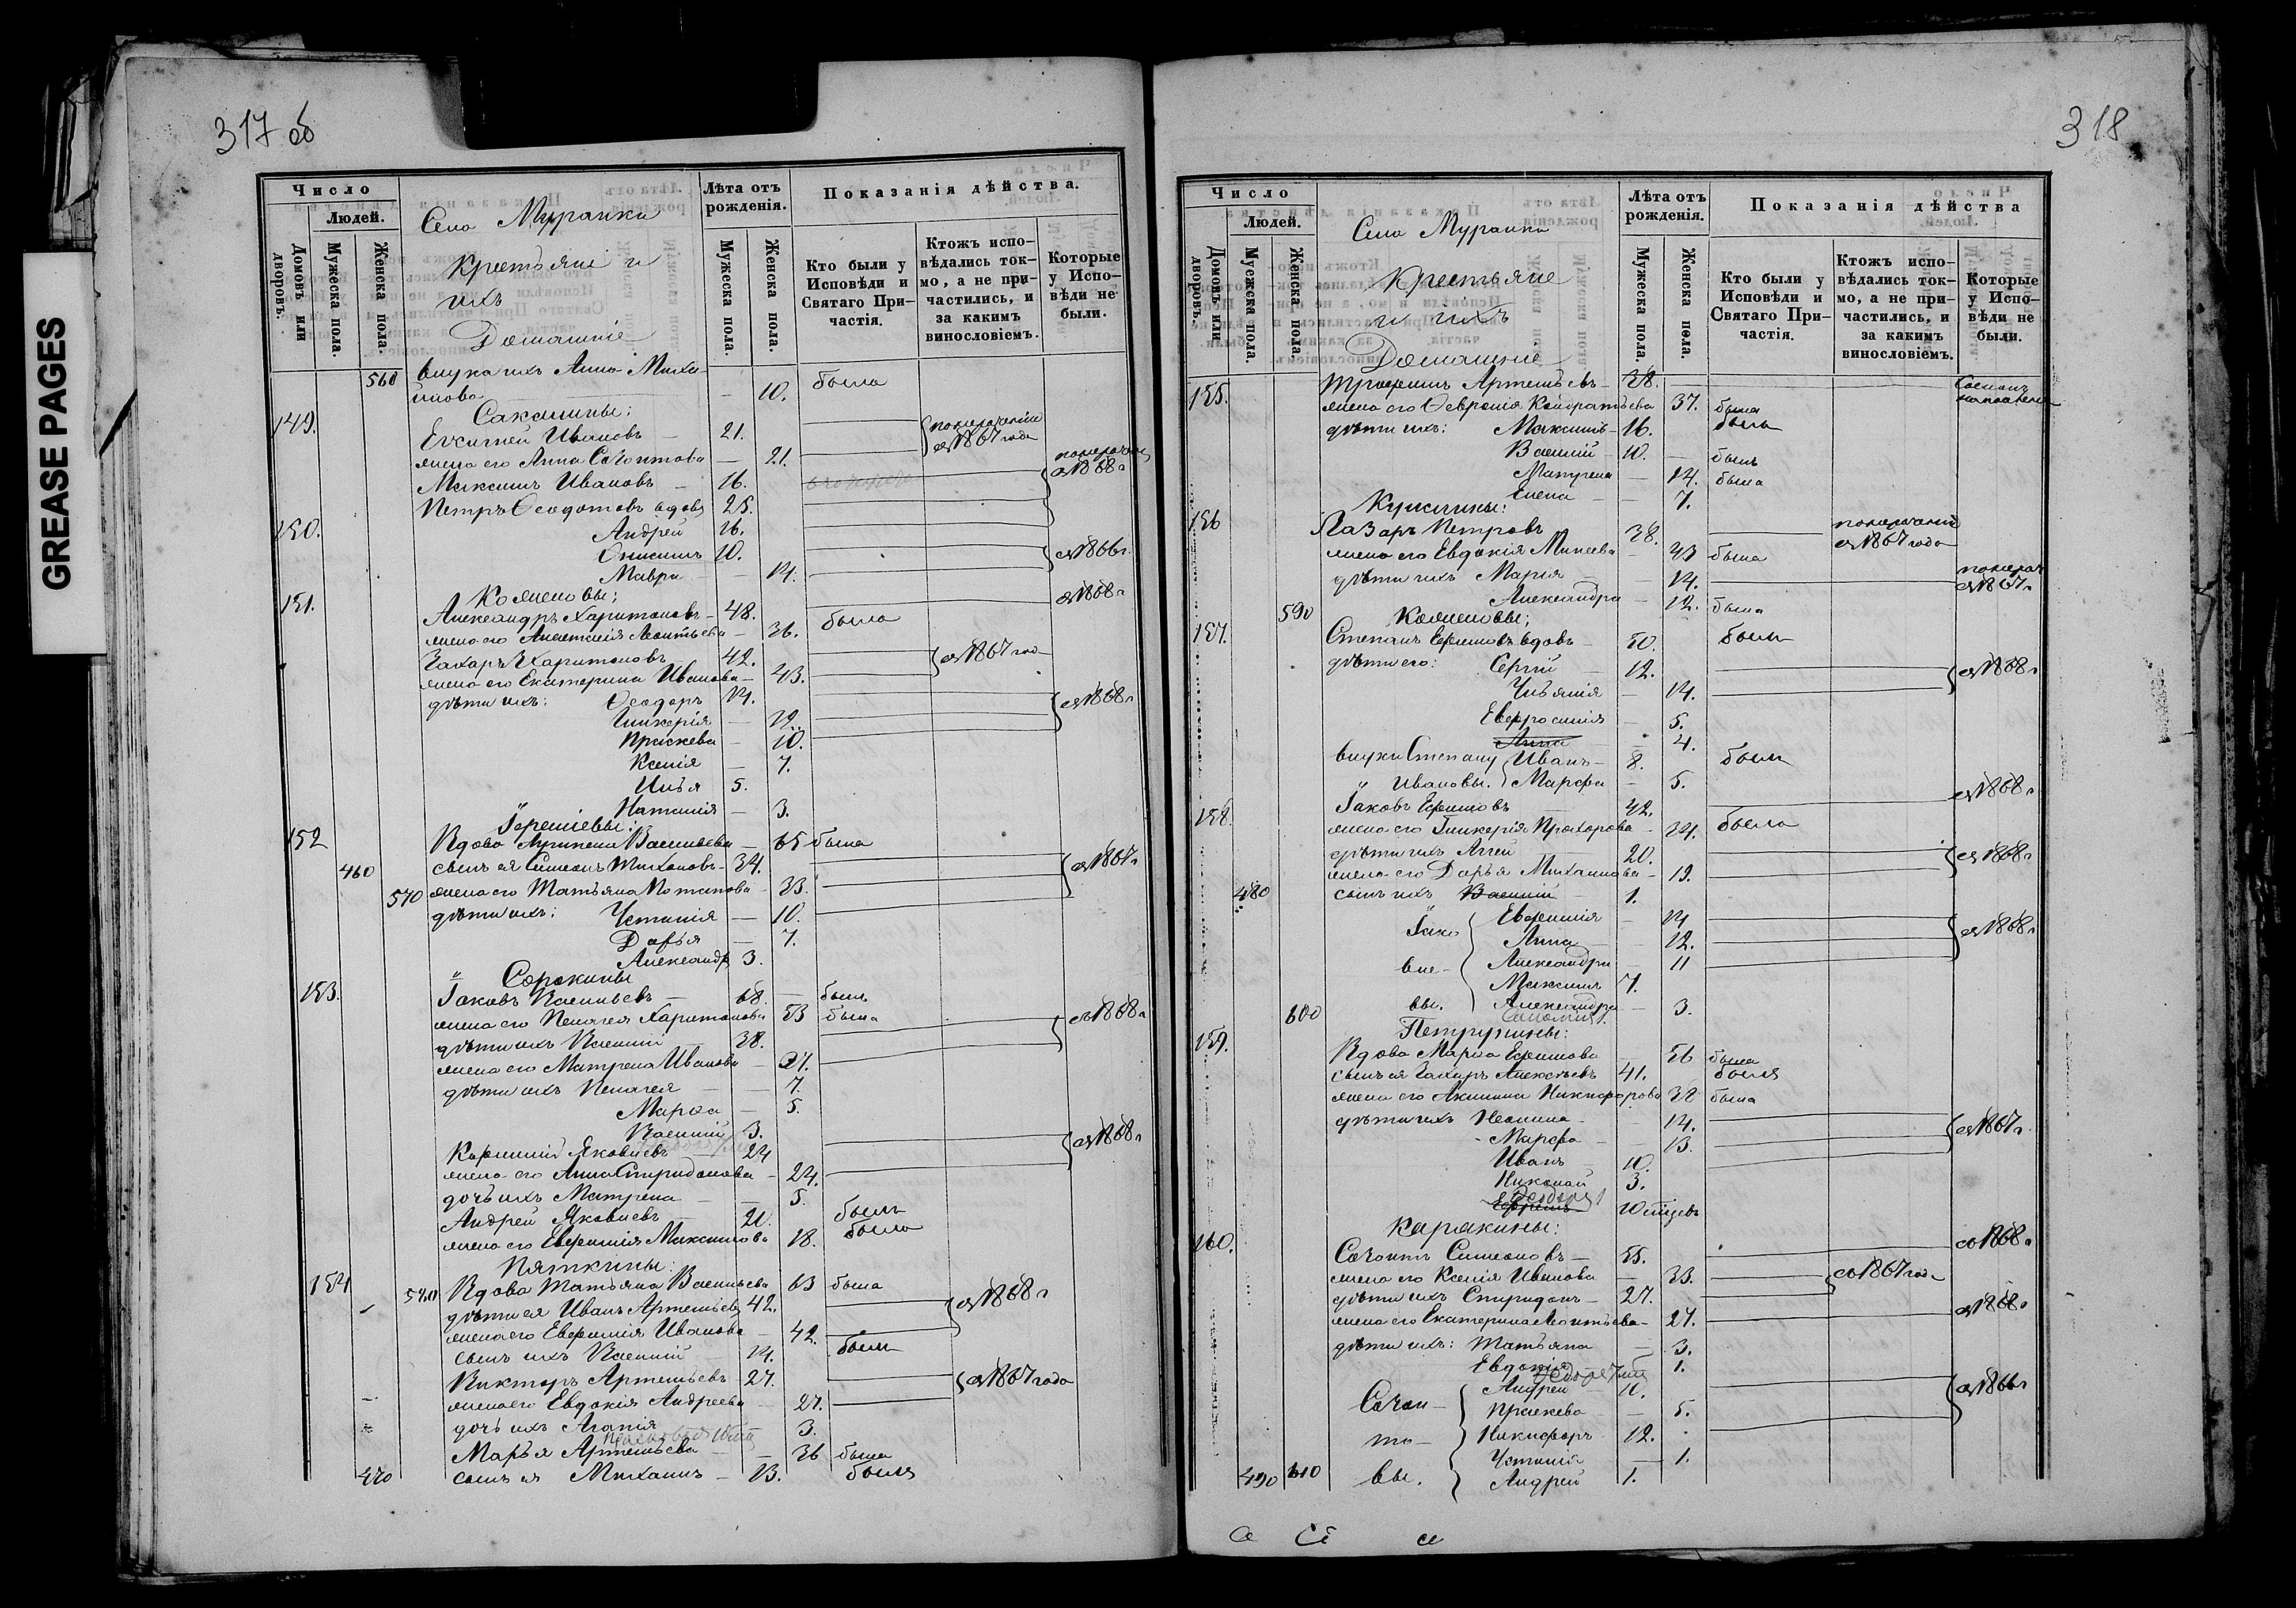 GREASE PAGES
317 об
Число
Людей.
Домовъ или дворовъ.
Мужеска пола.
Женска пола.
Село Муранка
Крестьяне и
ихъ
Домашніе
Лѣта отъ рожденія.
Мужеска пола.
Женска пола.
Показанія дѣйства.
Кто были у Исповѣди и Святаго Причастія.
Ктожъ исповѣдались токмо, а не причастились, и за какимъ винословіемъ.
Которые у Исповѣди не были.
560 внука ихъ Анна Михайлова — 10. была
149. Ивановъ — 21. съ 1867 года
жена его Анна — 21.
Максимъ Ивановъ — 16. съ 1868 г
150. Петръ Ѳеодотовъ вдовъ 25.
Андрей 16.
Онисимъ 10. съ 1866 г
Мавра — 14.
151. Александръ Харитоновъ — 48. съ 1868 г
жена его Леонтьева — 36. была
Захаръ Харитоновъ 42. съ 1867 год
жена его Екатерина Иванова — 43.
дѣти ихъ: Ѳеодоръ 14. съ 1868 г
Гликерія — 12.
Праскева — 10.
Ксенія — 7.
Илья 5.
Наталія — 3.
152 Вдова Васильева — 65 была
460 сынъ ея Симеонъ Тихоновъ — 34. съ 1867 г
570 жена его Татьяна Потапова — 33.
дѣти ихъ: Устинія — 10.
Дарья — 7.
Александръ 3.
Сорокины
153. Іаковъ Васильевъ — 68. — былъ
жена его Пелагея Харитонова 53 была
дѣти ихъ Василій 38. съ 1868 г
жена его Матрена Иванова —
дѣти ихъ Пелагея — 7
Марѳа — 5.
Василій 3.
Яковлевъ 24 съ 1868 г
жена его Анна Спиридонова — 24.
дочь ихъ Матрена — 5.
Андрей Яковлевъ — 20. былъ
жена его Евфимія Максимова 18. была
Пяткины:
154 580 Вдова Татьяна Васильева 63 была
дѣти ея Иванъ Артемьевъ 42. съ 1868 г
жена его Евфимія Иванова — 42.
сынъ ихъ Василій — 14. былъ
Викторъ Артемьевъ 27. съ 1867 года
жена его Евдокія Андреева — 27.
дочь ихъ Агапія — 3.
Марья Артемьева — 36 была
470 сынъ ея Михаилъ — 13. былъ
318
Число
Людей.
Домовъ или дворовъ.
Мужеска пола.
Женска пола.
Село Муранка
Крестьяне
и ихъ
Домашніе
Лѣта отъ рожденія.
Мужеска пола.
Женска пола.
Показанія дѣйства
Кто были у Исповѣди и Святаго Причастія.
Ктожъ исповѣдались токмо, а не причастились, и за какимъ винословіемъ.
Которые у Исповѣди не были.
155. Трофимъ Артемьевъ — 38.
жена его Ѳевронія Кондратьева 37. была
дѣти ихъ: Максимъ — 16. былъ
Василій — 10. — былъ
Матрена — 14. была
Елена — 7.
156 Лазаръ Петровъ 38. съ 1867 года
жена его Евдокія Минеева — 43 была
дѣти ихъ Марія — 14. съ 1867 г
Александра — 12. была
590
157. Степанъ Ефимовъ вдовъ — 50. былъ
дѣти его: Сергій — 12. съ 1868 г
Ульянія — 14.
Евфросинія — 5.
Анна — 4.
внуки Степану Иванъ — 8. былъ
Ивановы. Марфа — 5.
158. Іаковъ Ефимовъ 42. съ 1868 г
жена его Гликерія Прохорова — 34. была
дѣти ихъ 20. съ 1868 г
жена его Дарья Михаилова — 19.
480 сынъ ихъ Василій — 1.
Іако Евфимія — 14 съ 1868 г
Анна — 12.
вле- Александра — 11
Максимъ 7.
600 вы. Александра — 3.
Петрунины:
159. Вдова Марѳа Ефимова 56 была
сынъ ея Захаръ Алексѣевъ 41. былъ
жена его Акилина Никифорова 38 была
дѣти ихъ Неонила — 14. съ 1867 г
Марфа — 13.
Иванъ 10.
Николай 3.
Ефремъ
Карякины:
160. Симеоновъ — 55. съ 1868 г
жена его Ксенія Иванова — 33. съ 1867 год
дѣти ихъ Спиридонъ — 27.
жена его Екатерина Леонтьева — 27. съ 1868 г
дѣти ихъ: Татьяна — 3.
Евдокія 1.
Андрей съ 1866 г
Праскева — 5.
Никифоръ 12.
Устинія — 1.
490 610 вы. Андрей 1.